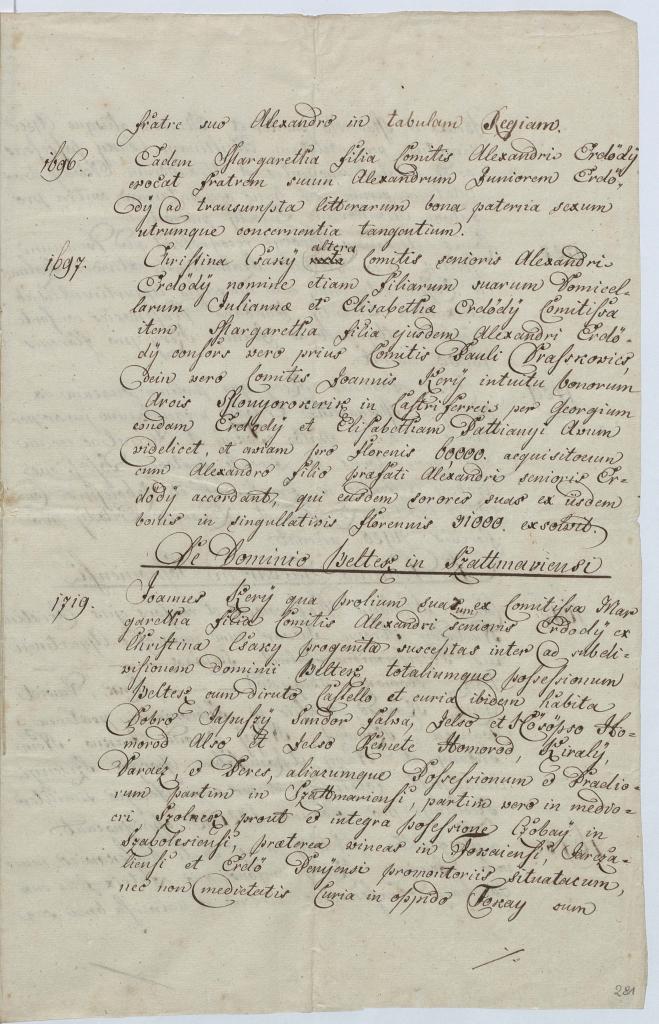 fratre suo Alexandro in tabulam Regiam.
1696. Eadem Margaretha filia Comitis Alexandri Erdödÿ
evocat fratrem suum Alexandrum Juniorem Erdö-
dÿ ad transumpta litterarum bona paterna sexum
utrumque concernentia tangentium.
altera
1697. Christina Csaky Comitis senioris Alexandri
Erdödÿ nomine etiam filiarum suarum Domicel-
larum Juliannæ et Elisabethæ Erdödÿ Comitissa
item Margaretha filia ejusdem Alexandri Erdö-
dÿ consors vero prius Comitis Pauli Drasskovics,
dein vero Comitis Joannis Kerÿ intuitu bonorum
Arcis Monyorokerek in Castri ferreis per Georgium
eundem Erdödÿ et Elisabetham Battianyi Avum
videlicet, et aviam pro florenis 60,000. acquisitorum
cum Alexandro filio præfati Alexandri senioris Er-
dödÿ accordant, qui easdem sorores suas ex iisdem
bonis in singullativis florennis 31000. exsolvit.
De Dominio Beltek in Szattmariensi
1719. Joannes Kerÿ qua prolium suarum ex Comitissa Mar
garetha Filia Comitis Alexandri senioris Erdödÿ ex
Christina Csaky progenita susceptas inter ad subdi-
visionem dominii Beltek, totaliumque possessionum
Beltek cum diruto Castello et curia ibidem habita
Dobro Sandor falva, Felso et Homorod
Also et Felso Homorod, Kiralÿ,
Daroez, é Veres, aliarumque Possessionum é Prædio-
rum partim in Szattmariensi, partim vero in medio-
cri Szolnok, prout é integra possessione Czobaÿ in
Szabolcsiensi, præterea vineas in Tokaiensi, Tarcza-
liensi et Erdö Benyensi promontoriis situatarum,
nec non medietatis Curia in oppido Tokay cum
./.
281